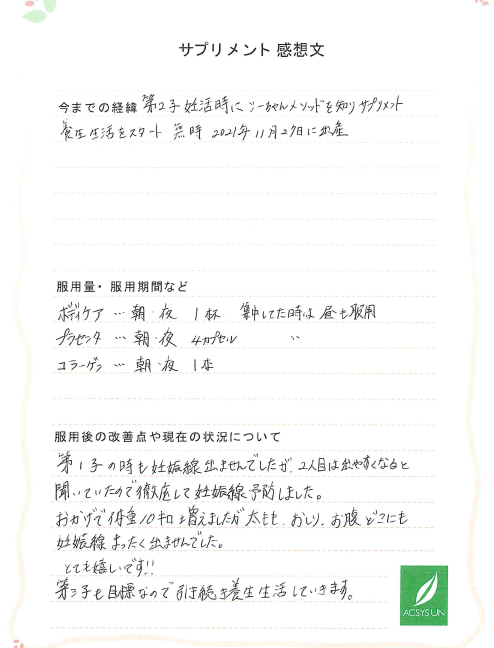 サプリメント 感想文
今までの経緯 第2子 妊活時に ソーちゃんメソッドを知り サプリメント
養生生活をスタート 無時 2021年 11月27日に出産
服用量・服用期間など
ボディケア … 朝・夜 1杯 集中してた時は 昼も服用
プラセンタ … 朝・夜 4カプセル 〃
コラーゲン … 朝・夜 1本
服用後の改善点や現在の状況について
第1子の時も妊娠線出ませんでしたが、2人目は出やすくなると
聞いていたので徹底して妊娠線予防しました。
おかげで体重10キロ増えましたが太もも、おしり、お腹どこにも
妊娠線まったく出ませんでした。
とても嬉しいです!!
第三子も目標なので引き続き養生生活していきます。
ACSYSUN